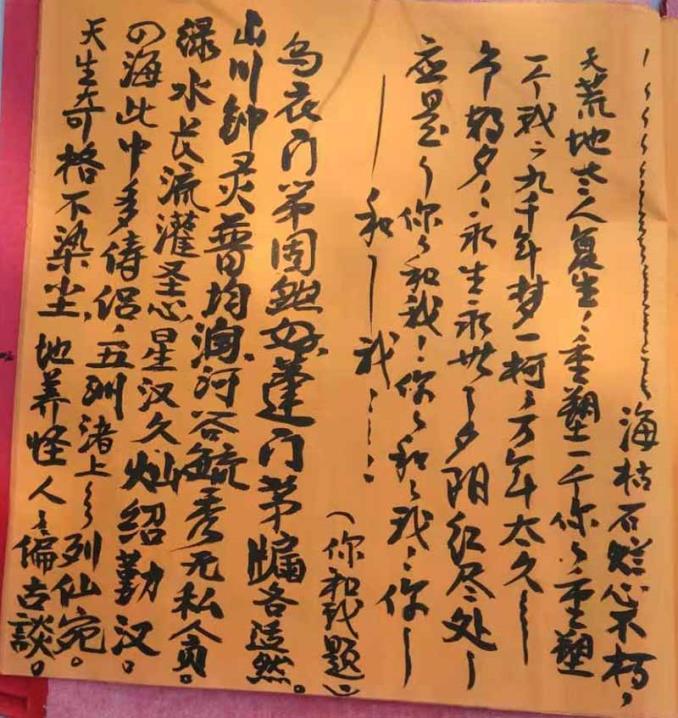 海枯石烂心不朽，
天荒地老人复生，重塑一个你，重塑
一个我，九千年梦一柯，万年太久——
争朝夕，永生永世——夕阳红尽处——
应是——你和我！你和我：你——
——和——我……
（你和我题）
乌衣门第固然好，蓬门茅牖各适然。
山川钟灵普均润，河谷毓秀无私人员。
绿水长流灌圣心，星汉久灿绍勤汉。
四海此中多俦侣，五洲渚上列仙宛。
天生奇格不染尘，地养怪人偏古談。